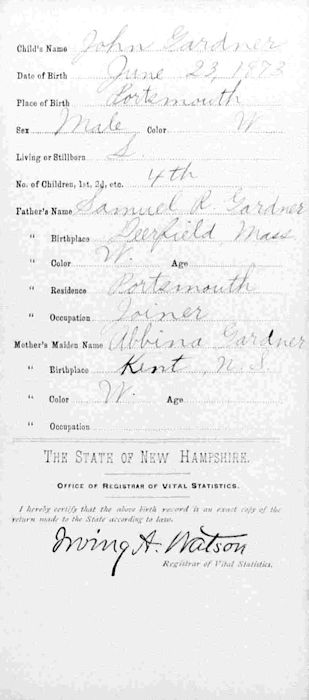 Child's Name John Gardner
Date of Birth June 23, 1873
Place of Birth Portsmouth
Sex Male Color W
Living or Stillborn
No. of Children, 1st, 2d, etc. 4th
Father's Name Samuel R. Gardner
" Birthplace Deerfield Mass
" Color W. Age
" Residence Portsmouth
" Occupation Joiner
Mother's Maiden Name Abbina Gardner
" Birthplace Kent, N. S.
" Color W. Age
" Occupation
THE STATE OF NEW HAMPSHIRE.
OFFICE OF REGISTRAR OF VITAL STATISTICS.
I hereby certify that the above birth record is an exact copy of the
return made to the State according to law.
Irving A. Watson
Registrar of Vital Statistics.